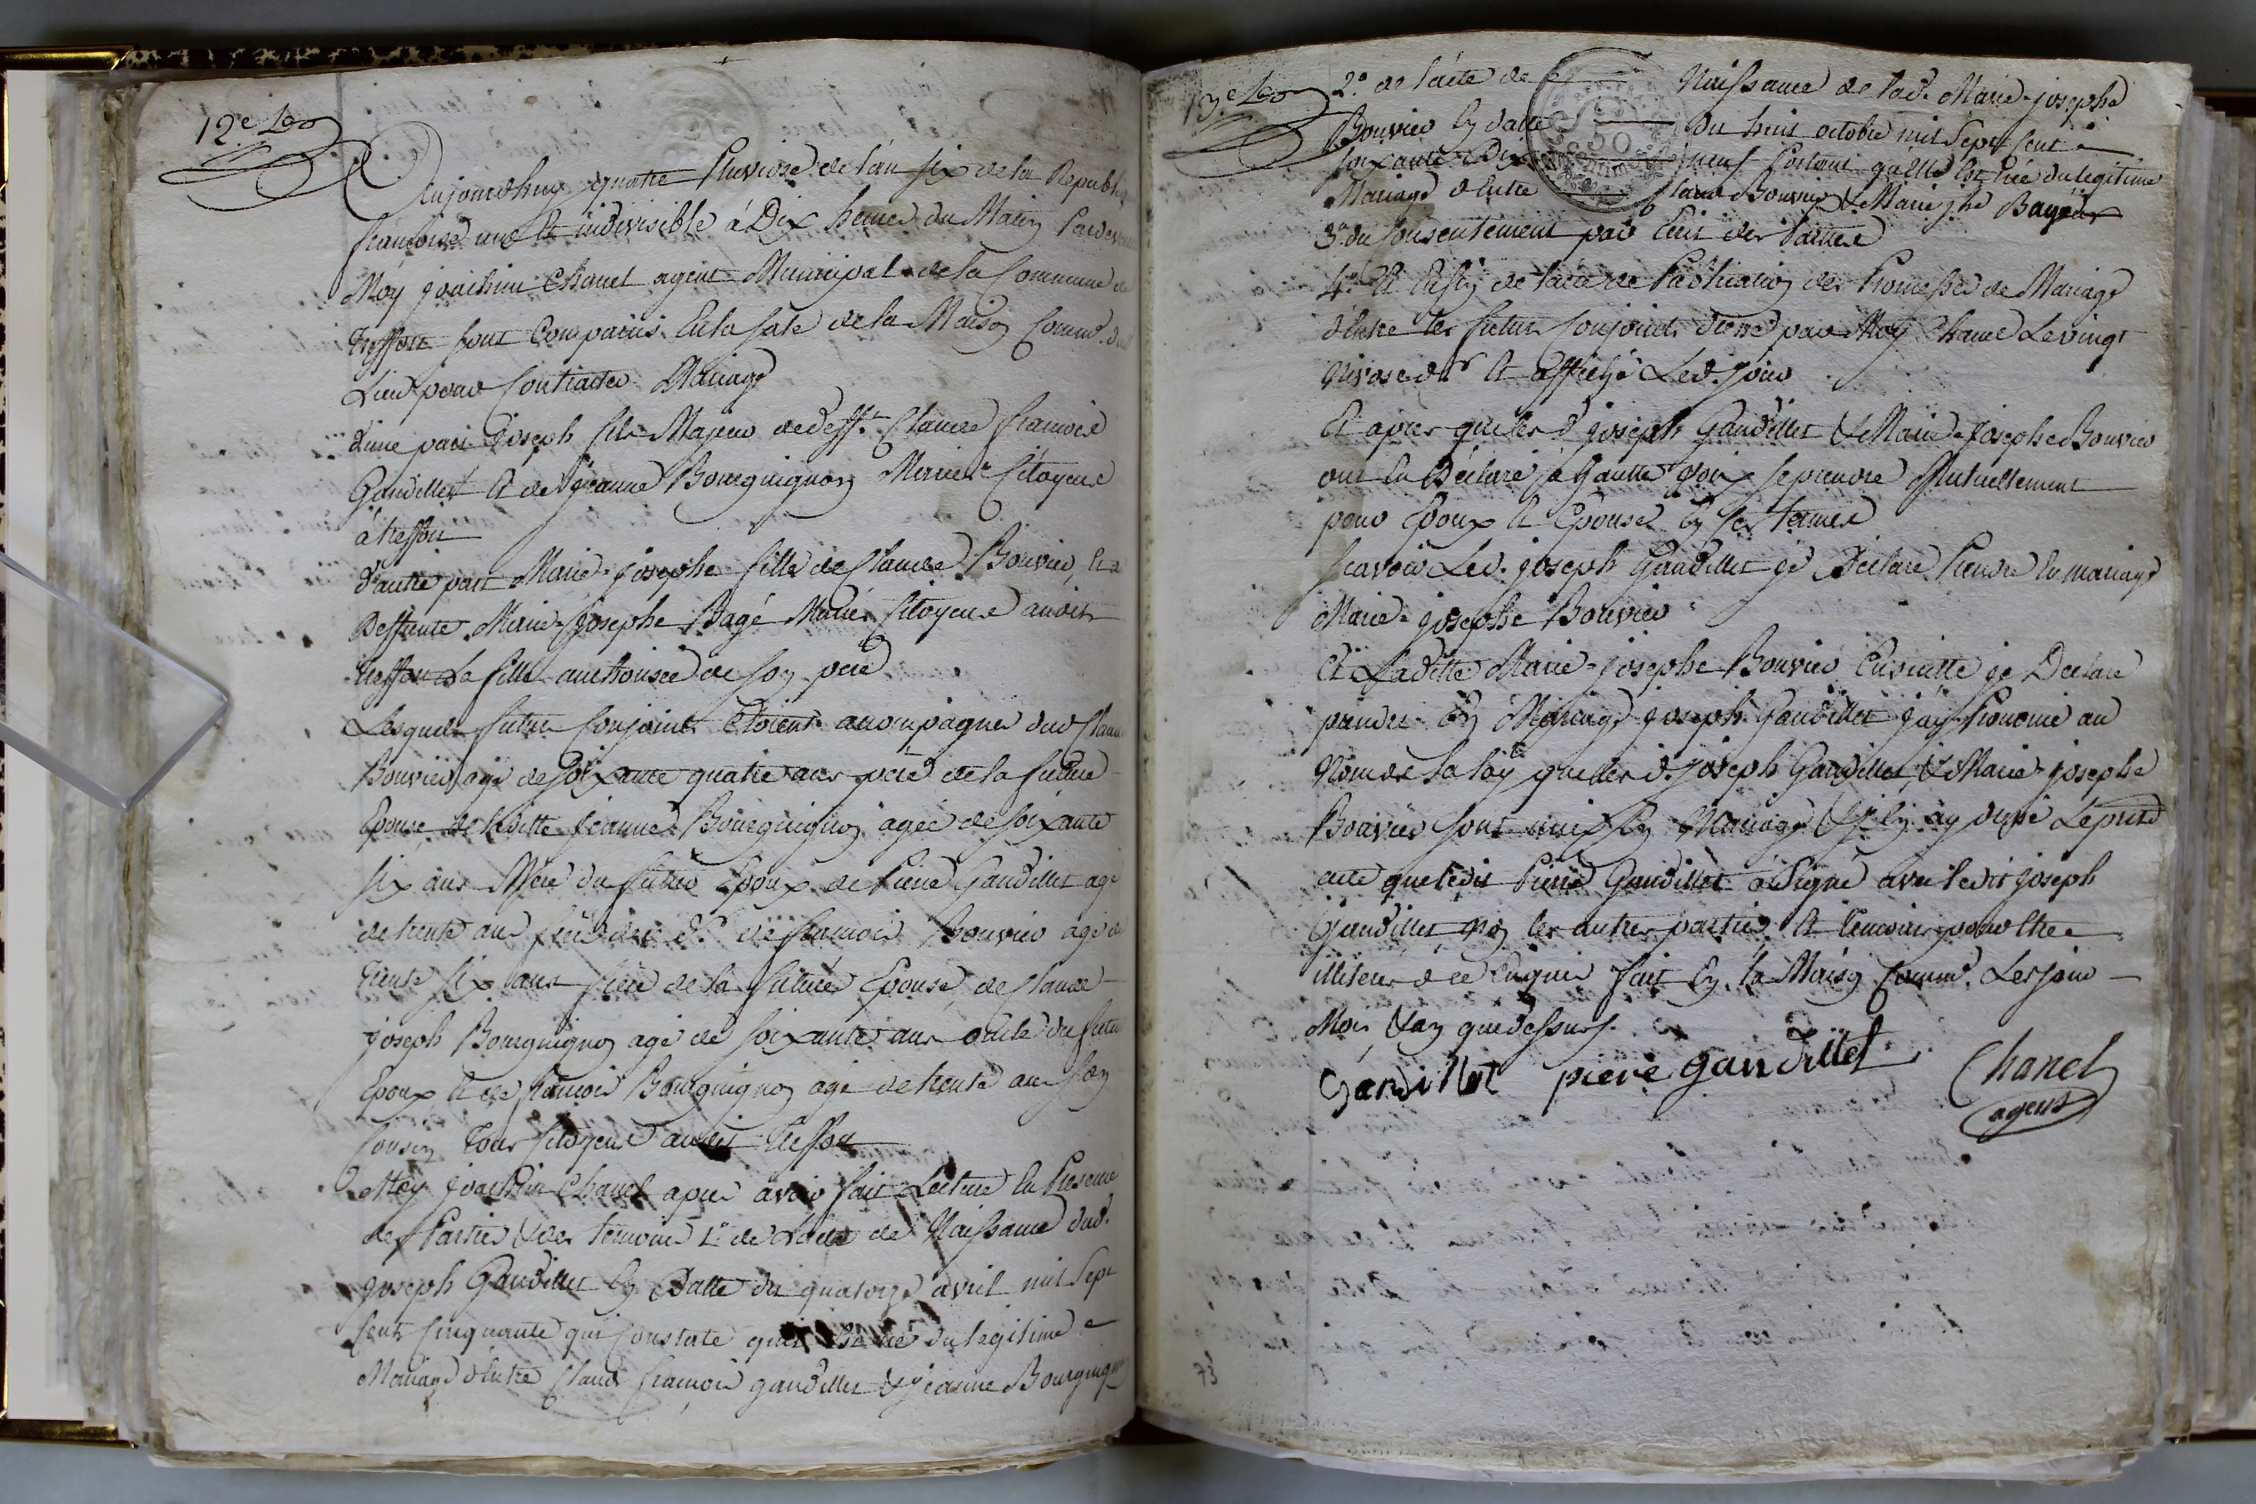 12.e
Aujourdhuy quatre Pluviose de l'an six de la Republi
francoise une et indivisible á Dix heures du Matin Pardev
Moy joachim Chanel agent Municipal de la Commune de
treffort sont Comparus En la sale de la Maison Comm.e
Lieu pour Contracter Mariage
d'une part Joseph fils Majeur de deff.t Claude francois
Gaudillet et de jeanne Bourguignon Citoyens
á treffort
d'autre part Marie-josephe fille de Claude Bouvier, et
Deffunte Marie-josephe Bagé Mariés Citoyens audit
treffort La fille authorisée de son pere
Lesquels futurs Conjoints Etoient accompagnés dud. Claude
Bouvier agé de soixante quatre ans pere de la future
Epouse, de laditte jeanne Bourguignon agée de soixante
six ans Mere du futur Epoux de Pierre Gaudillet agé
de trente ans frere de francois Bouvier agé de
trente six ans frere de la future Epouse, de Claude
joseph Bourguignon agé de soixante ans oncle du futur
Epoux et de francois Bourguignon agé de trente ans son
Cousin tous Citoyens audit treffort
Moy joachim Chanel apres avoir fait Lecture En Presence
des Parties & des temoins 1.º de l'acte de Naissance dud.
joseph Gaudillet En Datte du quatorze avril mil sept
Cent Cinquante qui Constate qu'il Est né du legitime
Mariage d'Entre Claude francois gaudillet & jeanne Bourguignon
13.e
2.º de l'acte de Naissance de lad. Marie-josephe
Bouvier En datte du huit octobre mil sept Cent
soixante Dix neuf Portant qu'Elle Est née du legitime
Mariage d'Entre Claude Bouvier & Marie jhe Bagé
3.º du Consentement par Ecrit des Parties
4.º Et Enfin de l'acte de Publication des Promesses de Mariage
d'Entre les futurs Conjoints dressé par Moy Chanel Le vingt
Nivose d.r Et affiché Led. jour
Et apres que lesd. joseph Gaudillet & Marie-josephe Bouvier
ont Eu Déclaré á haute voix se prendre Mutuellement
pour Epoux et Epouse En ces termes
scavoir Led. joseph Gaudillet je Déclare Prendre En mariage
Marie-josephe Bouvier
Et Laditte Marie-josephe Bouvier Ensuitte je Declare
prendre En Mariage joseph Gaudillet j'ay Prononcé au
Nom de la loy que lesd. joseph Gaudillet, & Marie-josephe
Bouvier sont unis En Mariage & j'En ay dressé Le prest
acte que ledit Pierre Gaudillet á signé avec ledit joseph
Gaudillet, non les autres parties et temoins pour Etre
illiterés de ce Enquis fait En la Maison Comm.e Les jour
Mois & an que dessus.
Gaudillet pierre gaudillet Chanel
agent
73